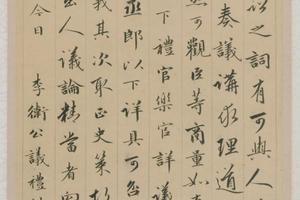 以之詞有可與人
奏議講求理道
然可觀臣等商量如
下禮官樂官詳議
丞郎以下詳具可否
義其次取正史策
人議論精當者
今日 李衛公議禮